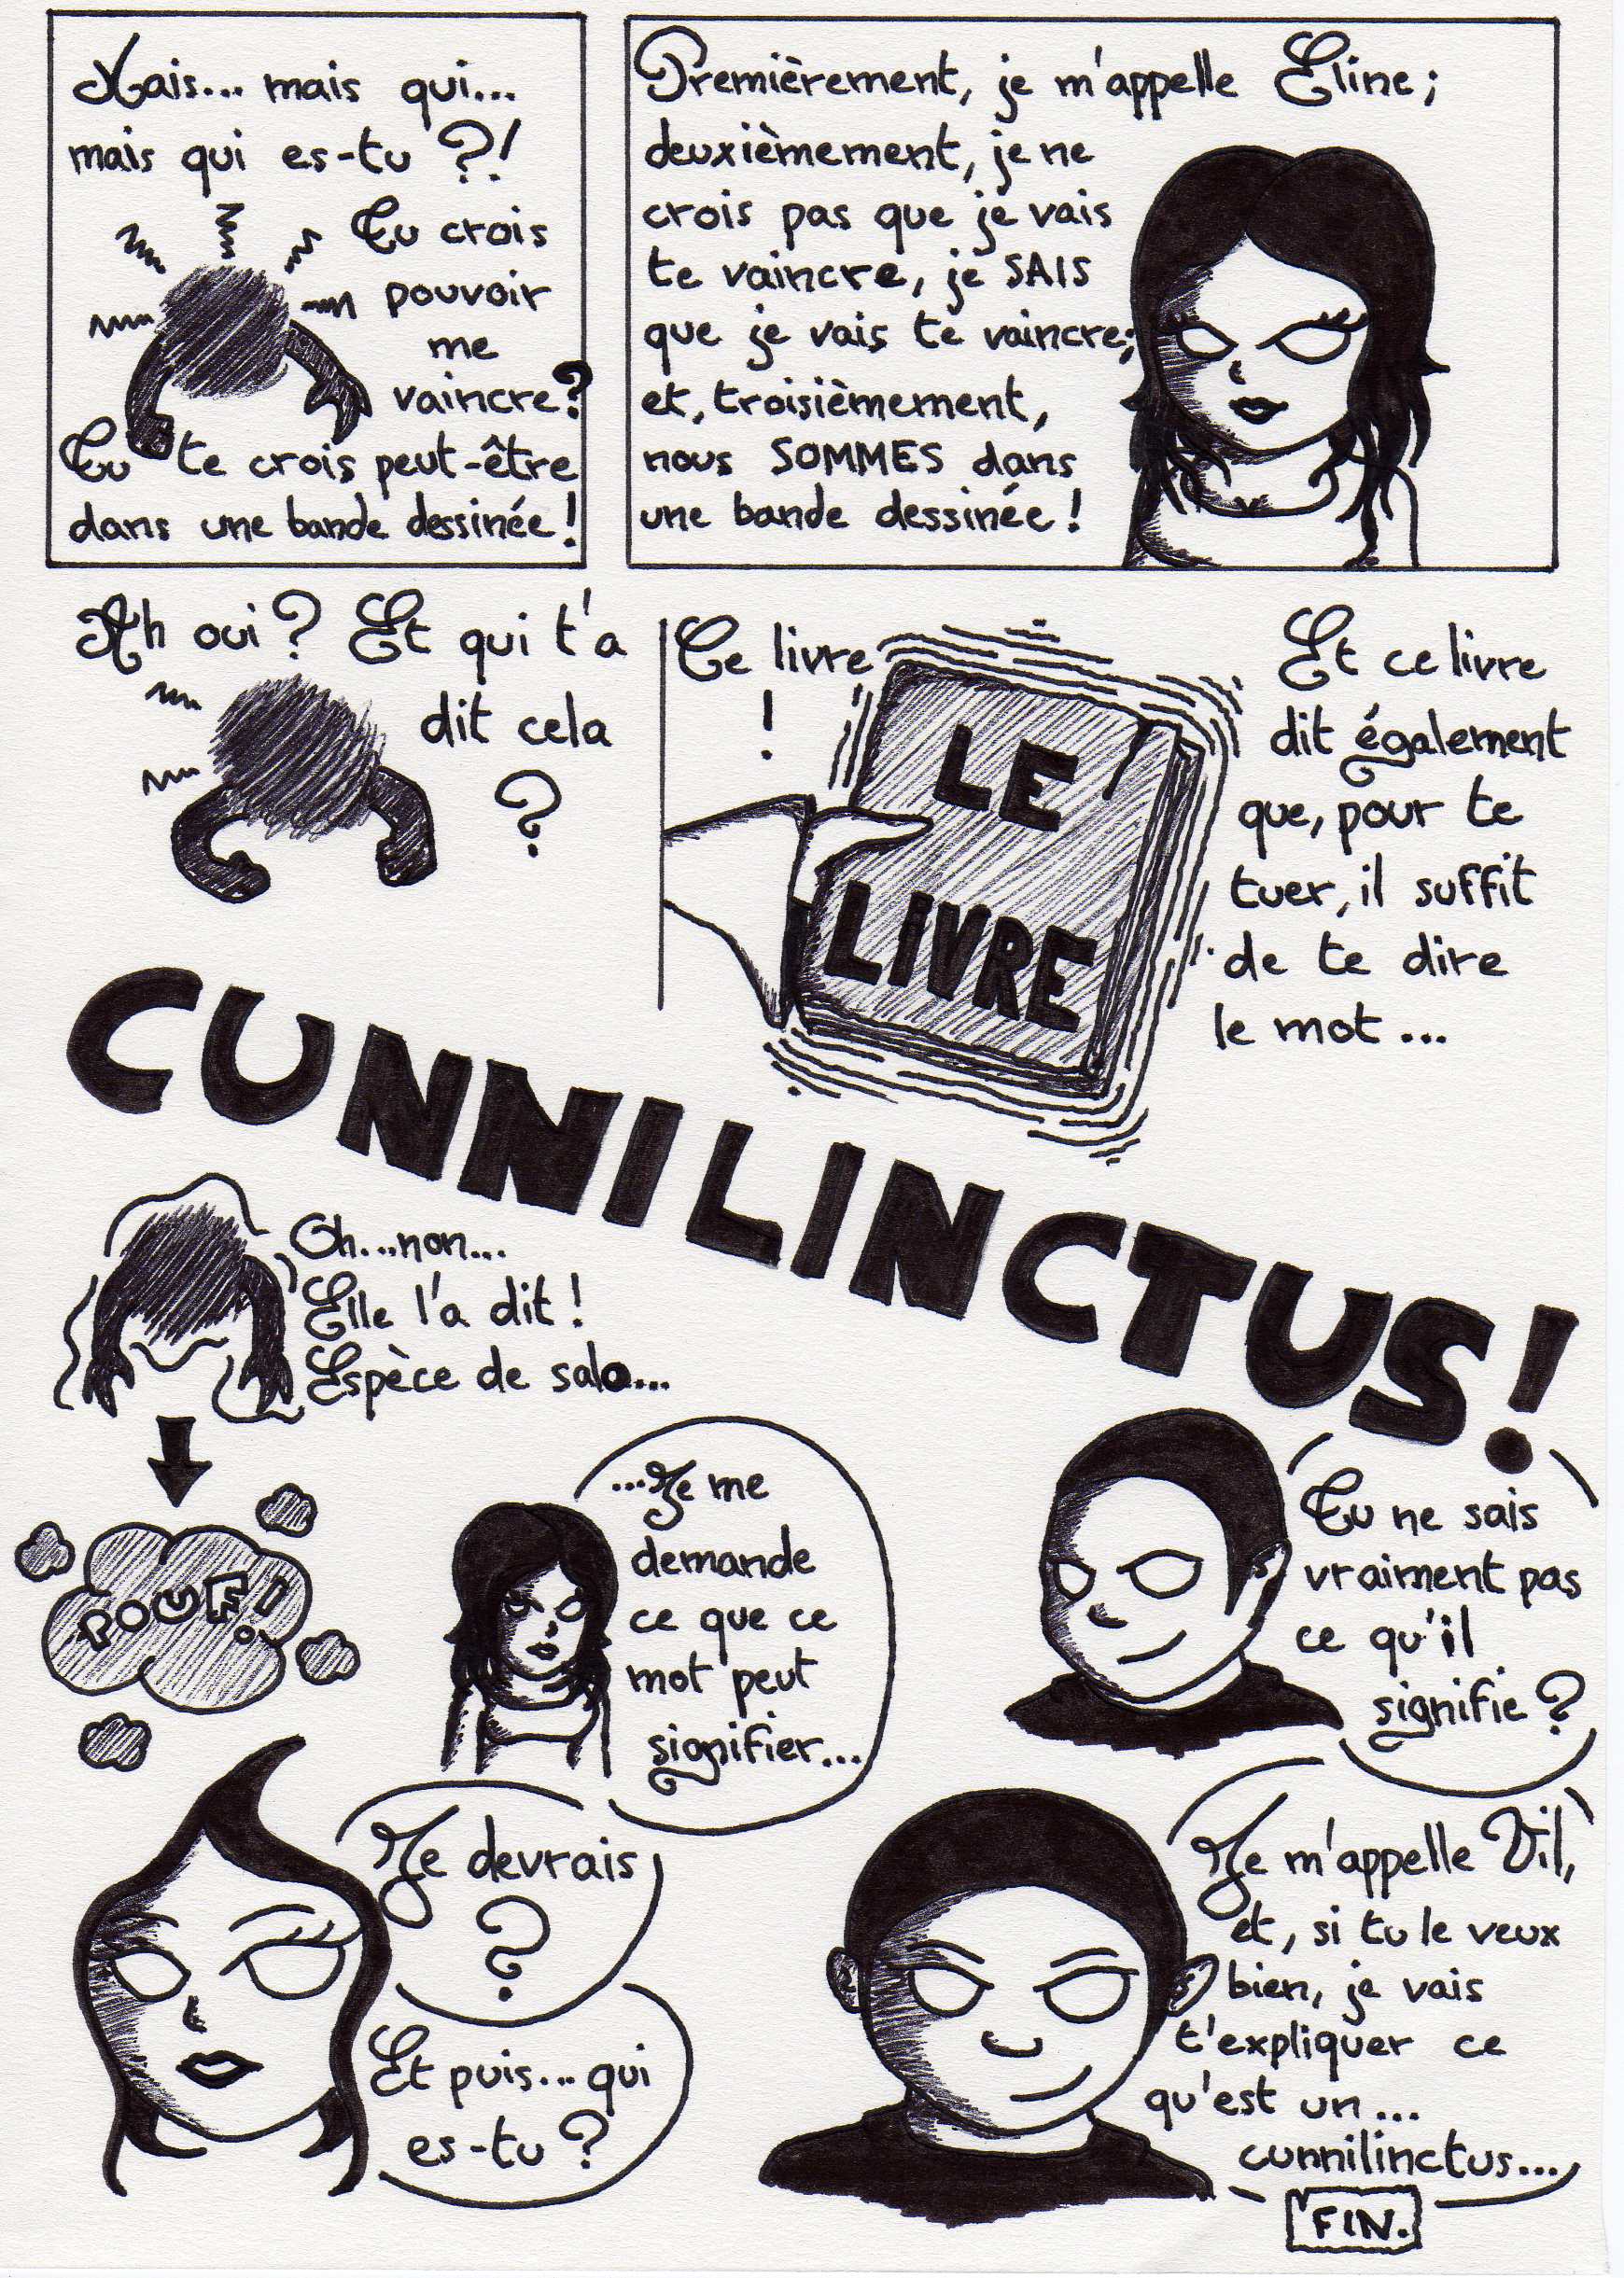 Mais... mais qui...
mais qui es-tu ?!
Tu crois
pouvoir
me
vaincre?
Tu te crois peut-être
dans une bande dessinée!
Premièrement, je m'appelle Eline;
deuxièmement, je ne
crois pas que je vais
te vaincre, je SAIS
que je vais te vaincre;
et, troisièmement,
nous SOMMES dans
une bande dessinée!
Ah oui? Et qui t'a
dit cela
?
Ce livre
!
LE
LIVRE
Et ce livre
dit également
que, pour te
tuer, il suffit
de te dire
le mot...
CUNNILINCTUS!
Oh...non...
Elle l'a dit!
Espèce de salo...
POUF!
...Je me
demande
ce que ce
mot peut
signifier...
Tu ne sais
vraiment pas
ce qu'il
signifie?
Je devrais
?
Et puis... qui
es-tu?
Je m'appelle Vil,
et, si tu le veux
bien, je vais
t'expliquer ce
qu'est un...
cunnilinctus...
FIN.